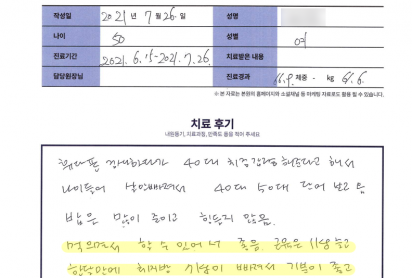 작성일 2021년 7월 26일 성명
나이 50 성별 여
진료기간 2021. 6. 15~2021. 7. 26. 치료받은 내용
담당원장님 진료경과 66.9 체중 - kg 61.6.
※ 본 자료는 본원의 홈페이지와 소셜채널 등 마케팅 자료로도 활용 될 수 있습니다.
치료 후기
내원동기, 치료과정, 만족도 등을 적어 주세요
40대 해주다고 해서
나이들어 살안빠져서 40대 50대 단어 보고 옴
밥은 많이 줄이고 힘든지 않음.
먹으면서 할 수 있어 너 좋음 근육은 늘고
한달만에 체지방 기성이 빠져서 기분이 좋고